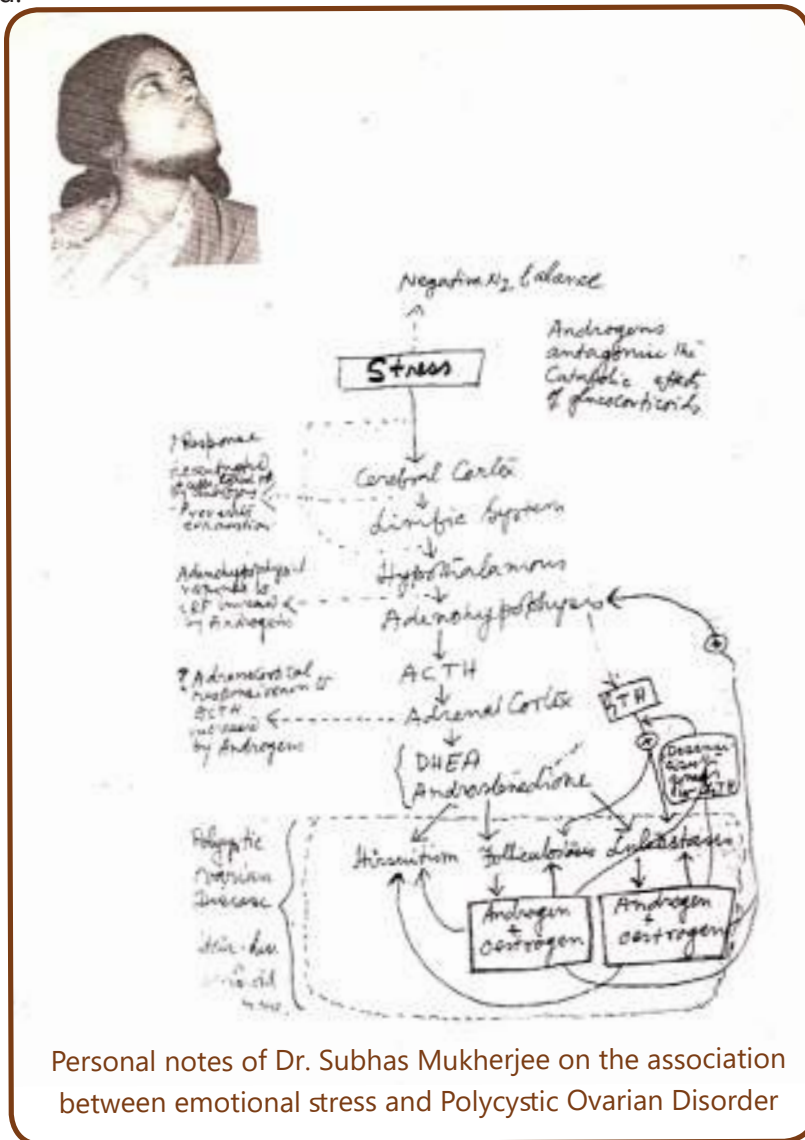 Negative N2 balance
Stress
Androgens
antagonise the
Catabolic effects
of glucocorticoids
↑ Response
Prevents
exhaustion
Cerebral Cortex
Limbic System
Hypothalamous
Adenohypophyseal
response to
CRF increased
by Androgens
Adenohypophysis
ACTH
? Adrenocortical
responsiveness to
ACTH
increased
by Androgens
Adrenal Cortex
DHEA
Androstenedione
GTH
Polycystic
Ovarian
Disease
Hirsutism Folliculostasis Luteostasis
Androgen
+
Oestrogen
Androgen
+
Oestrogen
Personal notes of Dr. Subhas Mukherjee on the association
between emotional stress and Polycystic Ovarian Disorder